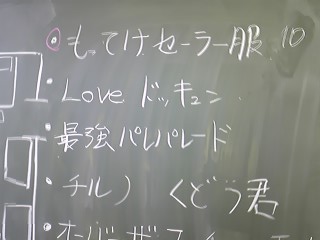 ◎もってけセーラー服 10
・Love ドッキュン
・最強パレパレード
・チルノ くどう君
・オーバーザ